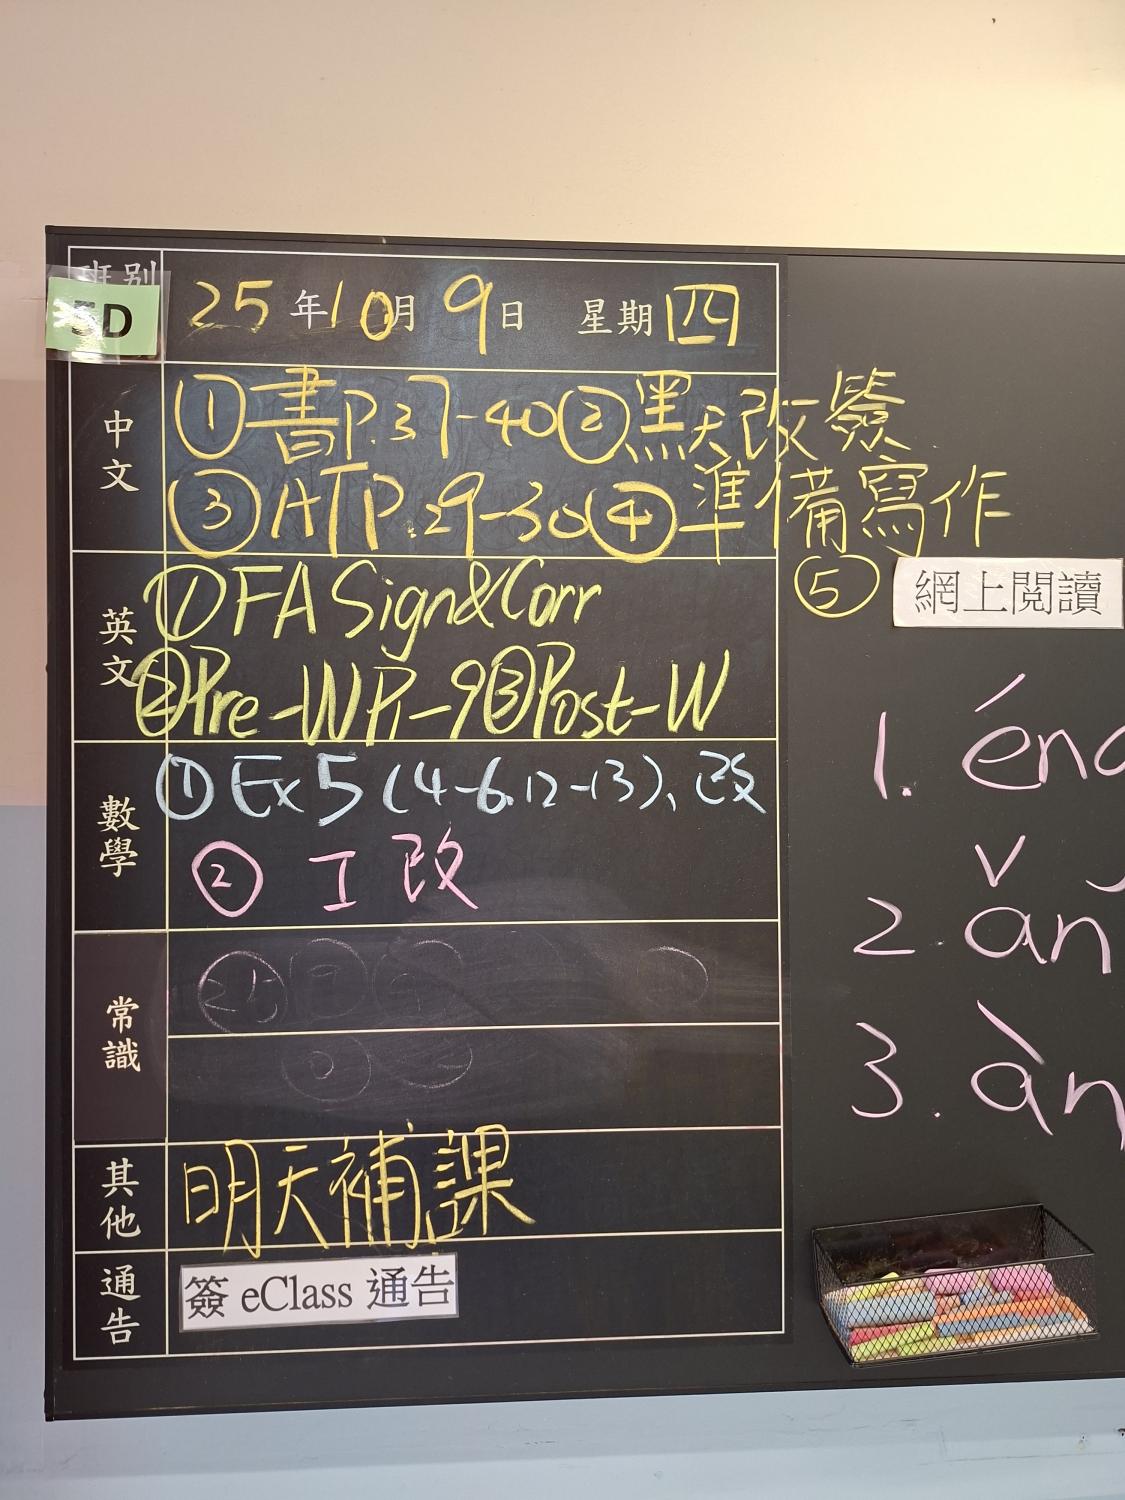 班別
5D
25年10月9日 星期四
中文
①書P.37-40②黑天改簽
③ATP.29-30④準備寫作
⑤網上閱讀
英文
①FA Sign&Corr
②Pre-WP1-9③Post-W
數學
①Ex5(4-6,12-13)、改
②工改
常識
其他
明天補課
通告
簽 eClass 通告
1. éng
2. ǎn
3. àn